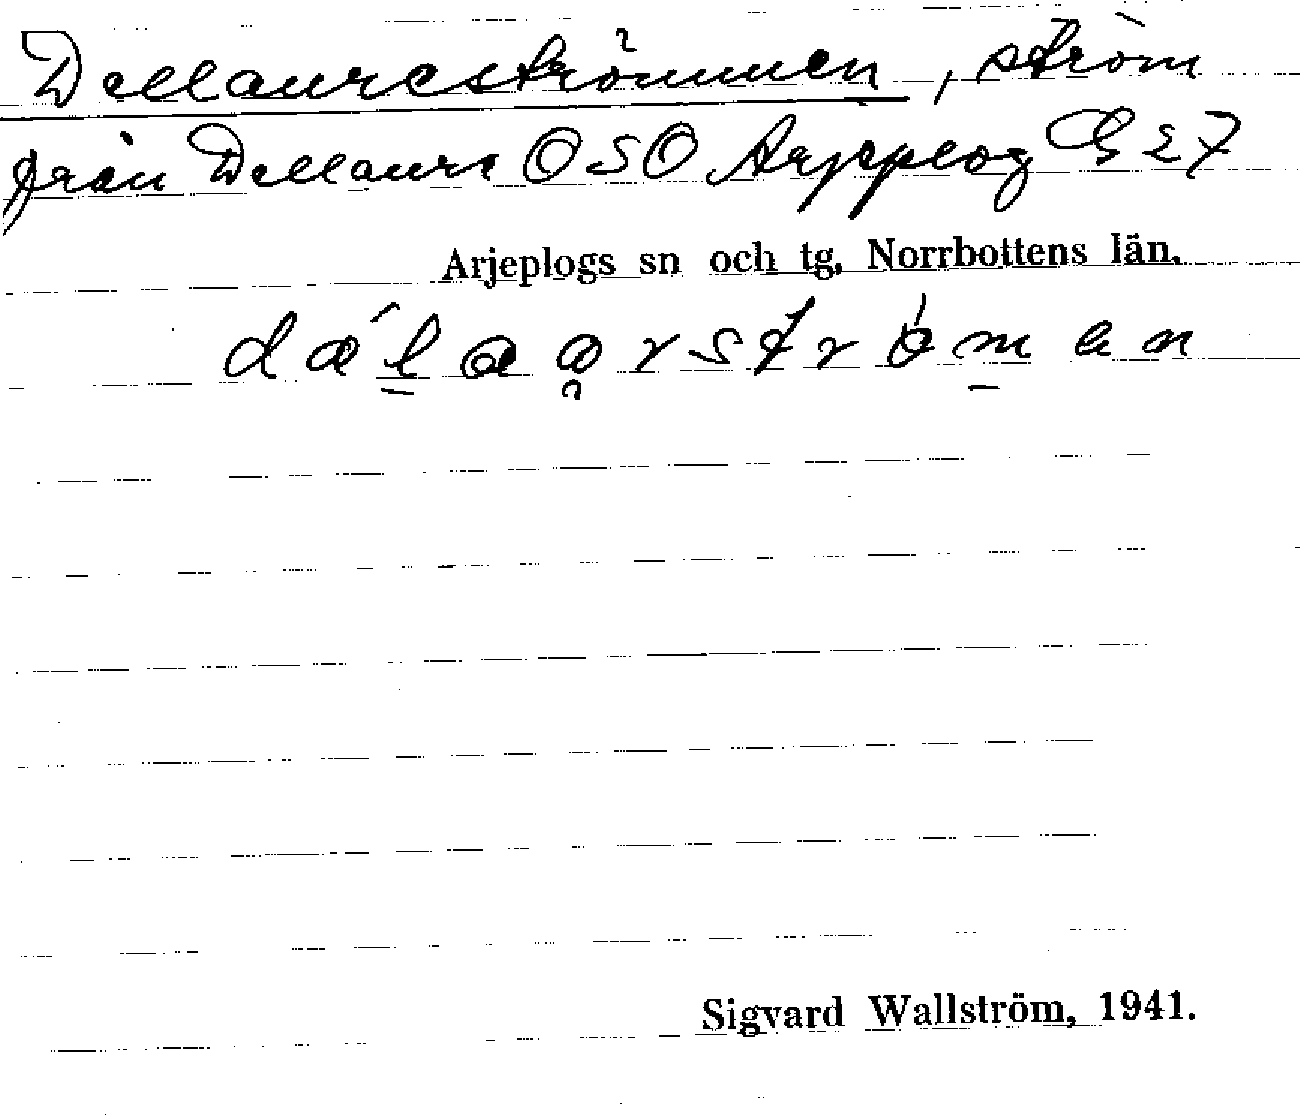 Dellaureströmmen, ström
från Dellaure OSO Arjeplog G 27
Arjeplogs sn och tg, Norrbottens län.
Sigvard Wallström, 1941.